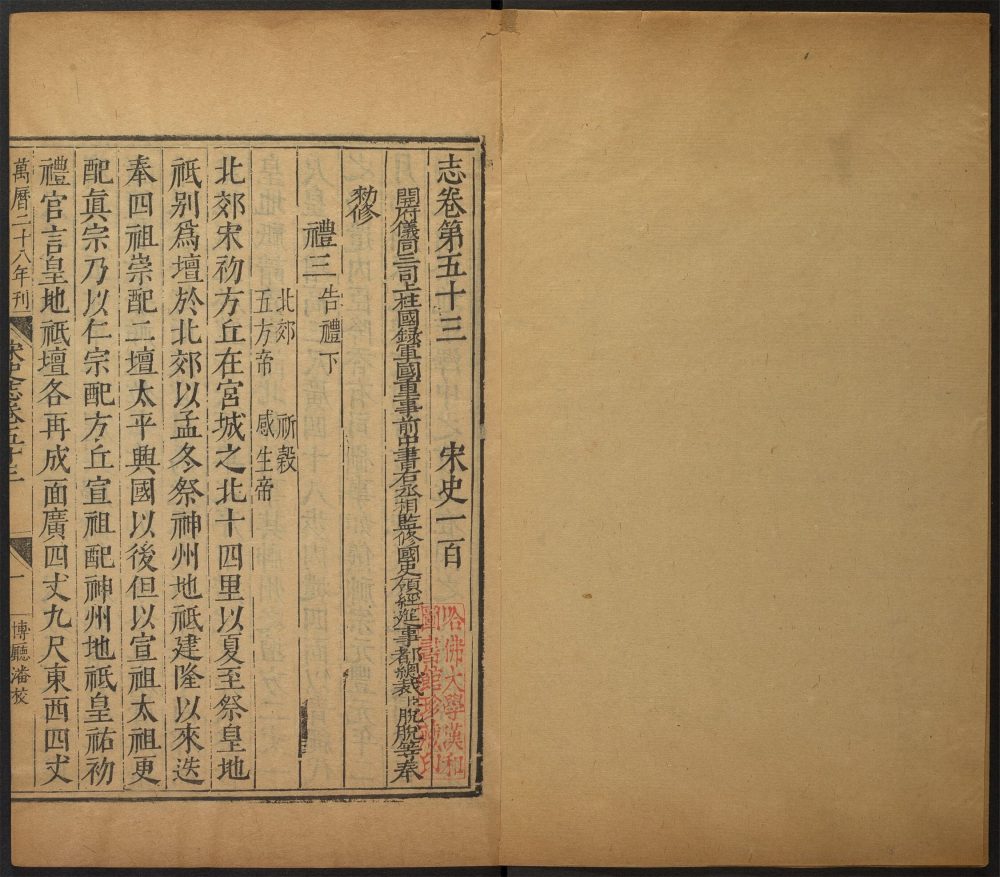 志卷第五十三 宋史一百
開府儀同三司上柱國錄軍國重事前中書右丞相監修國史領經筵事都總裁臣脫脫等奉
勑修
禮三 吉禮下
北郊 祈穀
五方帝 感生帝
北郊宋初方丘在宮城之北十四里以夏至祭皇地
祇別爲壇於北郊以孟冬祭神州地祇建隆以來迭
奉四祖崇配二壇太平興國以後但以宣祖太祖更
配眞宗乃以仁宗配方丘宣祖配神州地祇皇祐初
禮官言皇地祇壇各再成面廣四丈九尺東西四丈
萬曆二十八年刊 宋史志卷五十三 一 博廳潘校
哈佛大學漢和
圖書館珍藏印